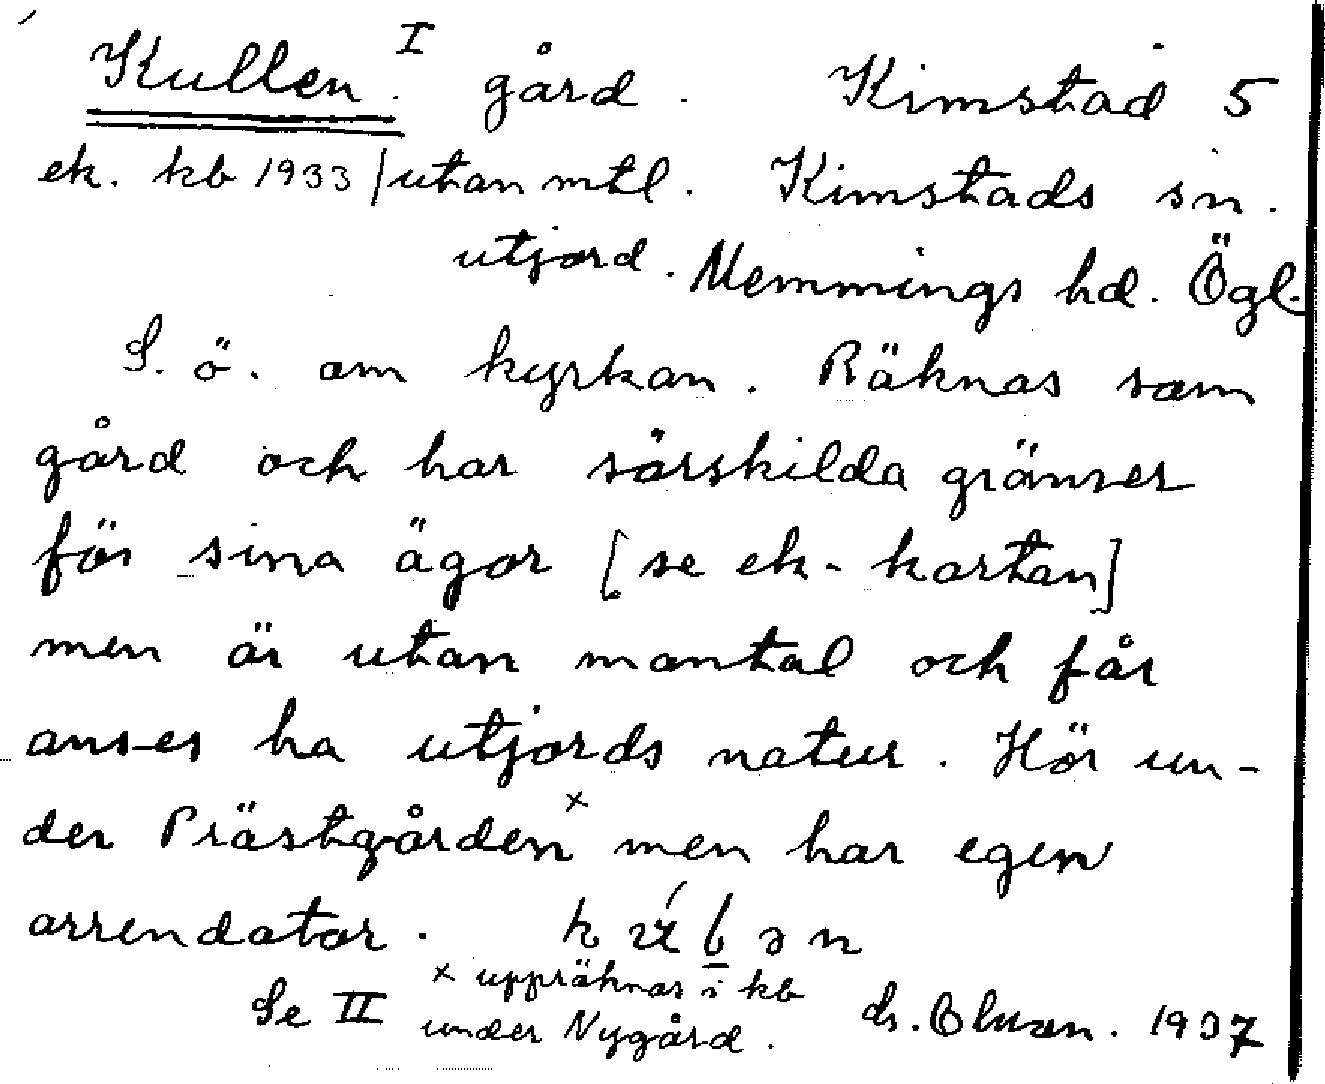 Kullen. I gård. Kimstad 5
ek. kb 1933 / utan mtl. Kimstads sn.
utjord. Memmings hd. Ögl.
S. ö. om kyrkan. Räknas som
gård och har särskilda gränser
för sina ägor [se ek-kartan]
men är utan mantal och får
anses ha utjords natur. Hör un-
der Prästgården x men har egen
arrendator.
x uppräknas i kb
Se II under Nygård. 1937